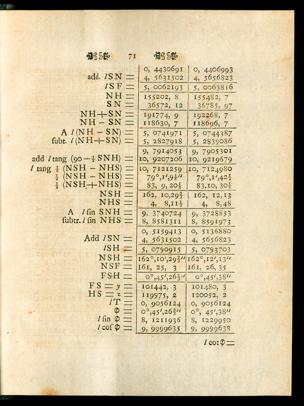 71
0, 4430691 0, 4406993
add. lSN = 4, 5631502 4, 5656823
lSF = 5, 0062193 5, 0063816
NH = 155202, 8 155482, 7
SN = 36572, 12 36785, 97
NH+SN = 191774, 9 192268, 7
NH − SN = 118630, 7 118696, 7
A l(NH − SN) = 5, 0741971 5, 0744187
subt. l(NH+SN) = 5, 2827918 5, 2839086
9, 7914053 9, 7905301
add l tang (90 − ½ SNH) = 10, 9207206 10, 9219679
l tang ½ (NSH − NHS) = 10, 7121259 10, 7124980
½ (NSH − NHS) = 79°,1',9½" 79°,1',42½
½ (NSH+NHS) = 83, 9, 20½ 83,10, 30½
NSH = 162, 10,29¾ 162, 12,13
NHS = 4, 8,11¼ 4, 8,48
A l sin SNH = 9, 3740724 9, 3728853
subtr. l sin NHS = 8, 8581311 8, 8591973
0, 5159413 0, 5136880
Add lSN = 4, 5631502 4, 5656823
lSH = 5, 0790915 5, 0793703
NSH = 162°,10',29¾" 162°,12',13"
NSF = 161, 25, 3 161, 26, 35
FSH = 0°,45',26¾" 0°,45',38"
FS = y = 101442, 3 101480, 3
HS = z = 119975, 2 120052, 2
lT = 0, 9056124 0, 9056124
Φ = 0°,45',26¾" 0°, 45',38"
l sin Φ = 8, 1211936 8, 1229950
l cof Φ = 9, 9999635 9, 9999638
l cot Φ =